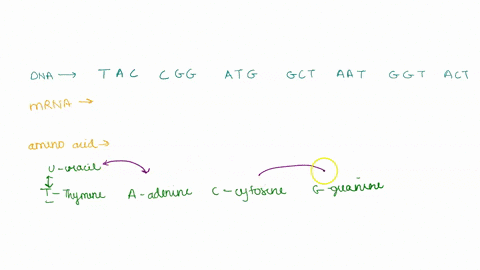 DNA → TAC CGG ATG GCT AAT GGT ACT
mRNA →
amino acid →
U-uracil
T-Thymine A-adenine C-cytosine G-guanine